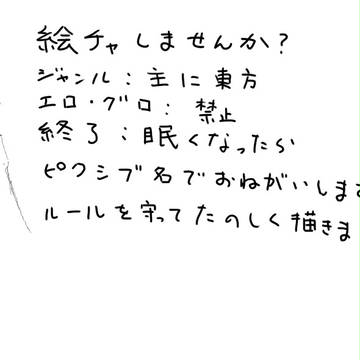 絵チャしませんか?
ジャンル:主に東方
エロ・グロ:禁止
終了:眠くなったら
ピクシブ名でおねがいします
ルールを守ってたのしく描きま